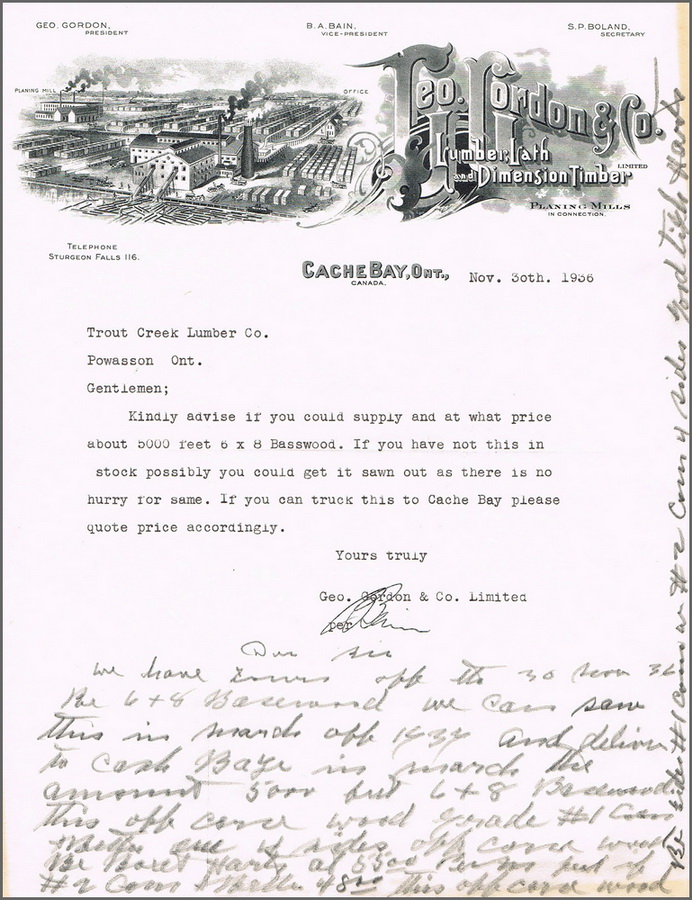 GEO. GORDON,
PRESIDENT
B. A. BAIN,
VICE-PRESIDENT
S. P. BOLAND,
SECRETARY
PLANING MILL
OFFICE
Geo. Gordon & Co.
LIMITED
Lumber, Lath
and Dimension Timber
PLANING MILLS
IN CONNECTION.
TELEPHONE
STURGEON FALLS 116.
CACHE BAY, ONT.,
CANADA.
Nov. 30th. 1936
Trout Creek Lumber Co.
Powasson Ont.
Gentlemen;
Kindly advise if you could supply and at what price
about 5000 feet 6 x 8 Basswood. If you have not this in
stock possibly you could get it sawn out as there is no
hurry for same. If you can truck this to Cache Bay please
quote price accordingly.
Yours truly
Geo. Gordon & Co. Limited
per Bain
Dear Sir
We have yours off the 30 Nov 36
6 + 8 Basswood we can saw
this in march off and deliver
to Cash Baye in march the
amount 5000 6 + 8 Basswood
this off wood Grade #1 Com
+ Better 4 sides off wood
at 55 00
#2 Com + Better 48 00 this off wood
#1 Com #2 Com 4 sides